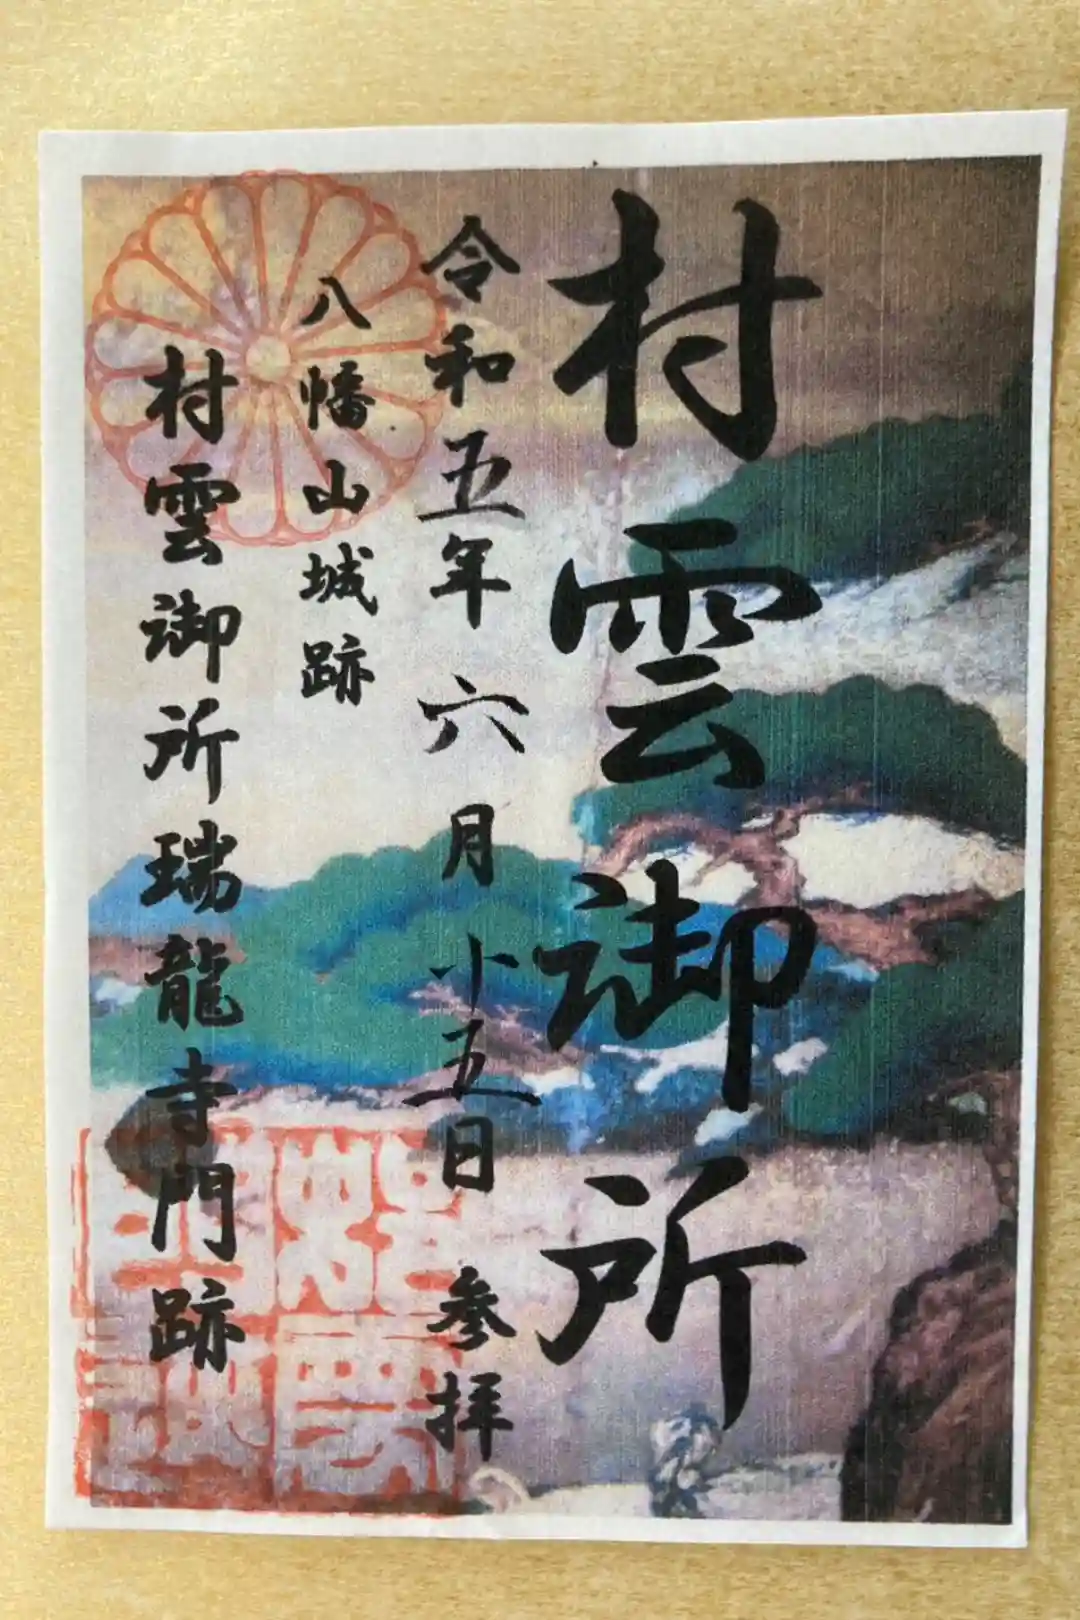 村雲御所
令和五年六月十五日 参拝
八幡山城跡
村雲御所瑞龍寺門跡